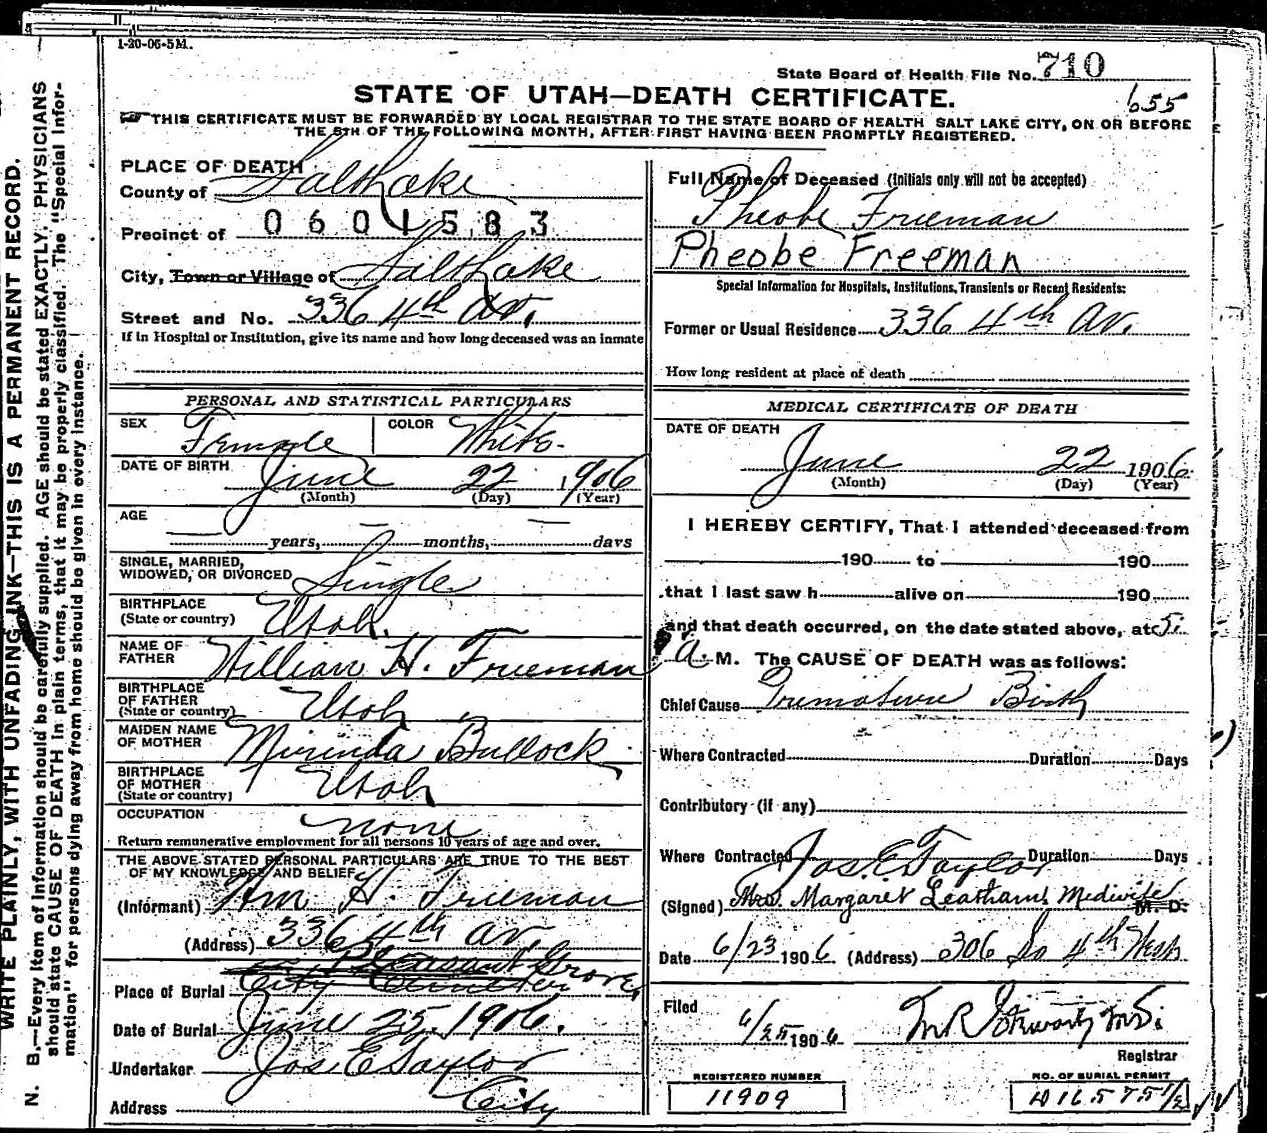 1-20-06-5M.
State Board of Health File No. 710
655
STATE OF UTAH—DEATH CERTIFICATE.
THIS CERTIFICATE MUST BE FORWARDED BY LOCAL REGISTRAR TO THE STATE BOARD OF HEALTH SALT LAKE CITY, ON OR BEFORE
THE 5TH OF THE FOLLOWING MONTH, AFTER FIRST HAVING BEEN PROMPTLY REGISTERED.
WRITE PLAINLY, WITH UNFADING INK—THIS IS A PERMANENT RECORD.
N. B.—Every item of information should be carefully supplied. AGE should be stated EXACTLY. PHYSICIANS
should state CAUSE OF DEATH in plain terms, that it may be properly classified. The "Special Infor-
mation" for persons dying away from home should be given in every instance.
PLACE OF DEATH
County of Salt Lake
0601583
Precinct of
City, Town or Village of Salt Lake
Street and No. 336 4th Av.
If in Hospital or Institution, give its name and how long deceased was an inmate
PERSONAL AND STATISTICAL PARTICULARS
SEX Female COLOR White
DATE OF BIRTH June 22 1906
(Month) (Day) (Year)
AGE
years, months, days
SINGLE, MARRIED,
WIDOWED, OR DIVORCED Single
BIRTHPLACE
(State or country) Utah.
NAME OF
FATHER William H. Freeman
BIRTHPLACE
OF FATHER
(State or country) Utah
MAIDEN NAME
OF MOTHER Mirinda Bullock
BIRTHPLACE
OF MOTHER
(State or country) Utah
OCCUPATION none
Return remunerative employment for all persons 10 years of age and over.
THE ABOVE STATED PERSONAL PARTICULARS ARE TRUE TO THE BEST
OF MY KNOWLEDGE AND BELIEF
(Informant) Wm H. Freeman
(Address) 336 4th Av.
Pleasant Grove
Place of Burial City Cemetery
Date of Burial June 25, 1906.
Undertaker Jos E Taylor
Address City
Full Name of Deceased (Initials only will not be accepted)
Pheobe Freeman
Pheobe Freeman
Special Information for Hospitals, Institutions, Transients or Recent Residents:
Former or Usual Residence 336 4th Av.
How long resident at place of death
MEDICAL CERTIFICATE OF DEATH
DATE OF DEATH
June 22 1906
(Month) (Day) (Year)
I HEREBY CERTIFY, That I attended deceased from
190 to 190
that I last saw h alive on 190
and that death occurred, on the date stated above, at 5
A. M. The CAUSE OF DEATH was as follows:
Chief Cause Premature Birth
Where Contracted Duration Days
Contributory (if any)
Where Contracted Duration Days
Jos. E. Taylor
(Signed) Mrs. Margaret Leatham, Medwife M. D.
Date 6/23 1906 (Address) 306 So 4th West
Filed
6/25 1906
Registrar
REGISTERED NUMBER
11909
NO. OF BURIAL PERMIT
16575 1/2